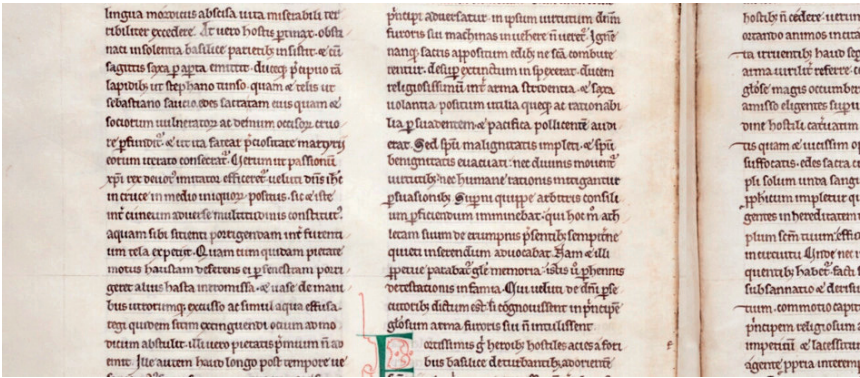 lingua mordicus abscisa uita miserabili ter
ribiliter excedere. At uero hostis ptinax obsti
nati insolentia basilice parietib; insistit. & cū
sagittis saxa p apta emittit. ducēq; p̄cipuo tā
lapidib; ut stephano tunso. quam & telis ut
sebastiano saucio. edes sacratam eius quam &
sociorum uulneratorꝝ ac demum occisorꝝ cruo
re pfundit. & ut ita fatear p̄ciositate martyrii
eorum iterato consecrat.
xp̄i rex deuotꝰ imitator efficeret᷑. uelud dn̄s ih̄c
in cruce in medio iniquorꝝ positus. sic & iste
int̄ cuneum aduerse multitudinis constitutꝰ.
aquam sibi sitienti porrigendam int̄ furenti
um tela expetit. Quam cum quidam pietate
motus haustam deferens ei p fenestram porri
geret. alius hasta intromissa. & uase de mani
bus utrorumq; excusso ac simul aqua effusa.
regi quidem sitim extinguendi ocium admo
dicum abstulit. illi uero pietatis p̄mium n̄ ad
emit. Ille autem haud longo post tempore ue
p̄ncipi aduersatur. in ipsum uirtutum dn̄m
furoris sui machinas inuehere n̄ ueret᷑. Igne
nanq; sacris appositum edib; ne
religiosissimū int̄ arma stridentia. & saxa
uolantia positum utilia queq; ac rationabi
lia p suadentem. & pacifica pollicentē audi
erat. Sed sp̄u malignitatis impleti. & sp̄u
benignitatis euacuati. nec diuinis mouent᷑
uirtutib;. nec humane rationis mitigantur
psuasionib;. Sup̄ni quippe arbitris consili
um pficiendum imminebat. qui hoc m̊ ath
letam suum de erumpnis p̄sentib; sempit̄ne
quieti inserendum aduocabat. Nam & illi
ppetue parabat᷑ gl̄e memoria. istis ů phennis
detestationis infamia. Qui uelud de dn̄i pse
cutorib; dictum est. si cognouissent in p̄ncipē
gl̄osum arma furoris sui n̄ intulissent.
Fortissimis g̊ heroib; hostiles acies a fori
bus basilice deturbantib;. adoriente
hostib; n̄ cedere. uerum
ortando animos in
ta irruentib; haud
arma uirilit̄ referre.
gl̄ose magis occumb
amisso eligentes
dine hostili
suffocatis. edes sacra
pli solum unda
pphicum impletur
gentes in hereditatem
plum
in circuitu
quentib; haber̄
subsannatio &
tium. commotio
p̄ncipem religiosum
imperitū &
agente ppria